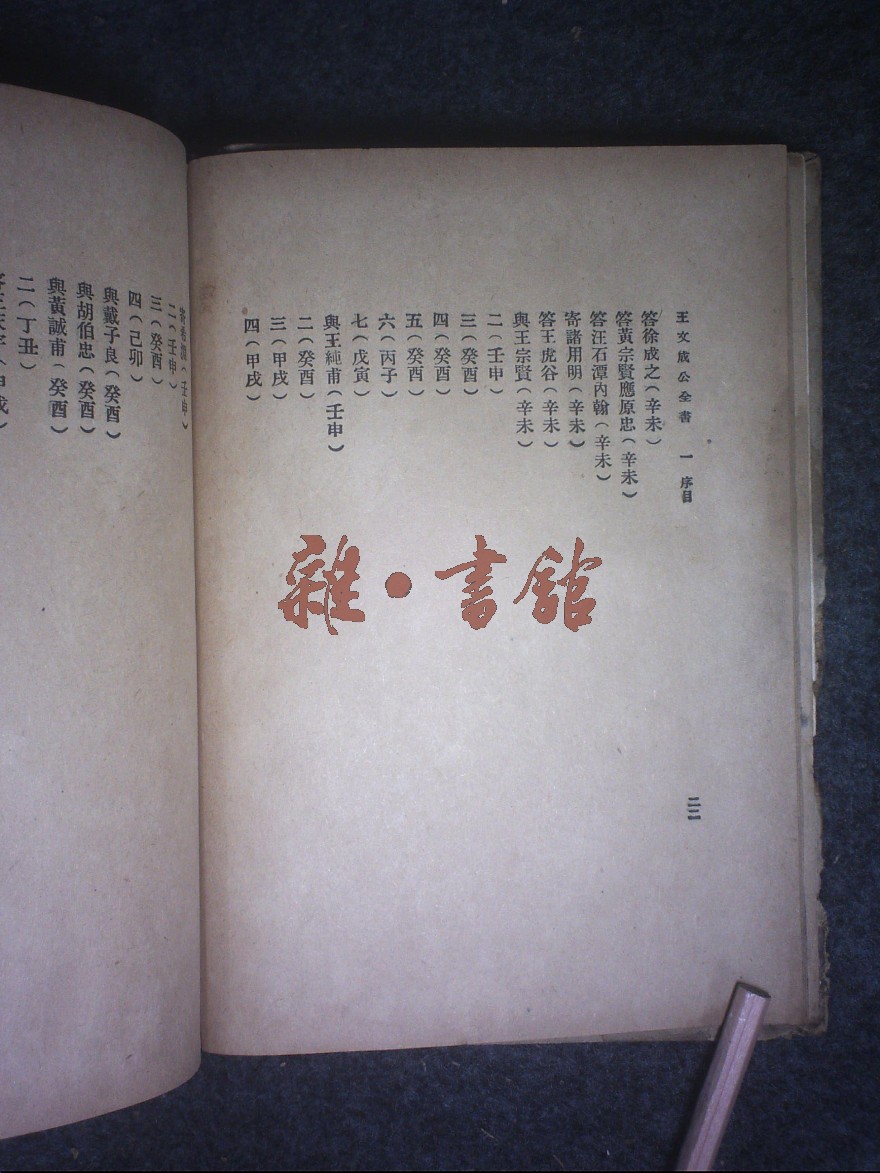 王文成公全書 一 序目
二二
答徐成之(辛未)
答黃宗賢應原忠(辛未)
答汪石潭內翰(辛未)
寄諸用明(辛未)
答王虎谷(辛未)
與王宗賢(辛未)
二(壬申)
三(癸酉)
四(癸酉)
五(癸酉)
六(丙子)
七(戊寅)
與王純甫(壬申)
二(癸酉)
三(甲戌)
四(甲戌)
寄希淵(壬申)
二(壬申)
三(癸酉)
四(己卯)
與戴子良(癸酉)
與胡伯忠(癸酉)
與黃誠甫(癸酉)
二(丁丑)
雜·書館